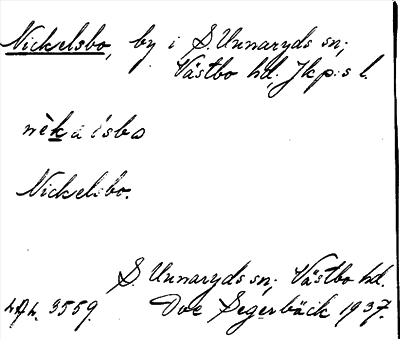 Nickelsbo, by i S. Unnaryds sn;
Västbo hd, Jkp:s l.
Nickelsbo.
S. Unnaryds sn; Västbo hd.
3559. Dve Segerbäck 1937.